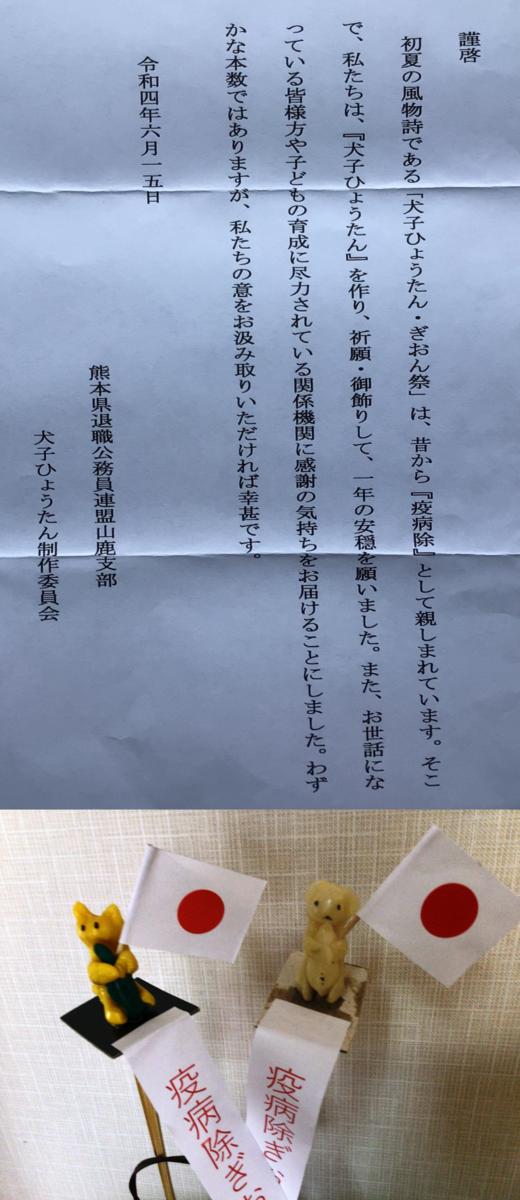 謹啓
初夏の風物詩である「犬子ひょうたん・ぎおん祭」は、昔から『疫病除』として親しまれています。そこ
で、私たちは、『犬子ひょうたん』を作り、祈願・御飾りして、一年の安穏を願いました。また、お世話にな
っている皆様方や子どもの育成に尽力されている関係機関に感謝の気持ちをお届けることにしました。わず
かな本数ではありますが、私たちの意をお汲み取りいただければ幸甚です。
令和四年六月一五日
熊本県退職公務員連盟山鹿支部
犬子ひょうたん制作委員会
疫病除ぎお
疫病除ぎ